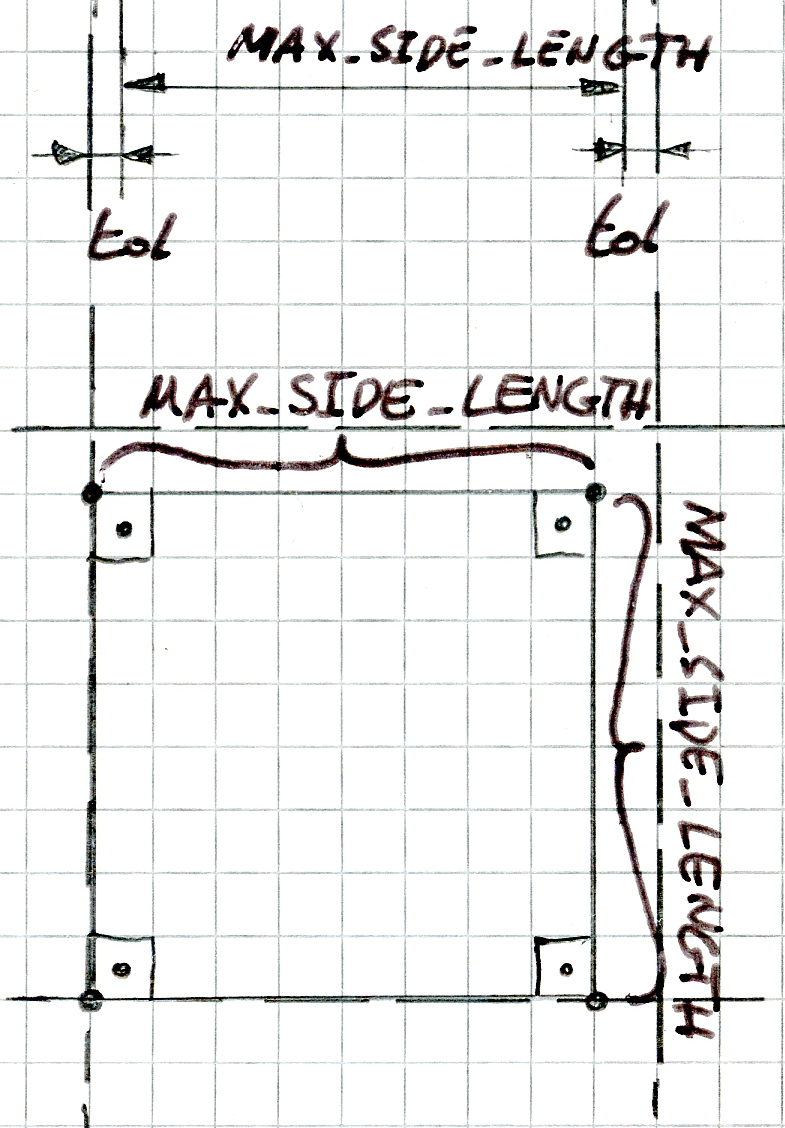 MAX_SIDE_LENGTH
tol
tol
MAX_SIDE_LENGTH
MAX_SIDE_LENGTH